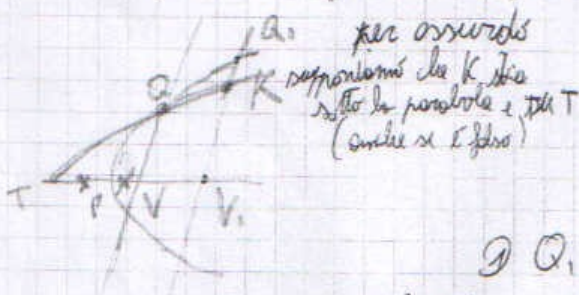 Q₁
per assurdo
K supponiamo che K stia
Q sotto la parabola e
(anche se è falso)
T P V V₁
Q₁